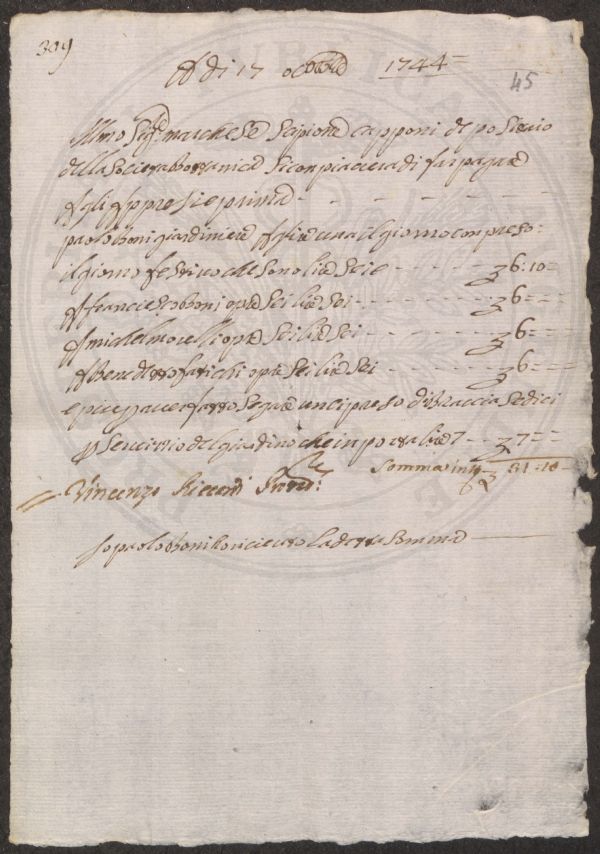 309
A di 17 ottobre 1744 =
45
Illmo Sigre marchese Scipione capponi depositario
della Società Bottanica Si conpiacera di far pagare
A gli Appresie primo - - - - -
paolo boni giardiniere il giorno conpreso:
il giorno festivo che sono lire Seie - - - - 6:10=
A francie boni opre Sei lire Sei - - - - 6= = =
A michel morelli opre Sei lire Sei - - - - 6= = =
A Benedetto fatichi opre Sei lire Sei - - - - 6= = =
e piu p aver fatto Segare un cipreso di braccia Sedici
p Servittio del giardino che in porta lire 7 - - - 7= =
Somma in tt 31:10=
Vincenzo
Io paolo boni ho ricieuto la detta Somma